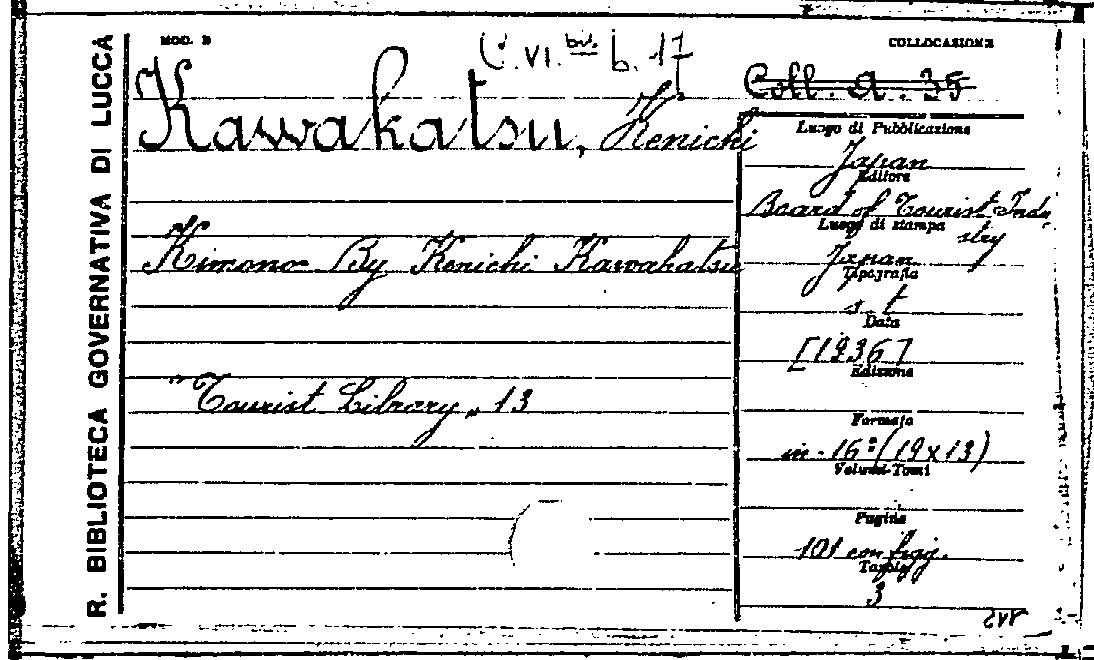 R. BIBLIOTECA GOVERNATIVA DI LUCCA
MOD. B
C.VI. bis. b. 17
COLLOCAZIONE
Coll. A. 35
Kawakatsu, Kenichi
Kimono By Kenichi Kawakatsu
"Tourist Library„ 13
Luogo di Pubblicazione
Japan
Editore
Board of Tourist Indu
stry
Luogo di stampa
Japan
Tipografia
s. t
Data
[1936]
Edizione
Formato
in-16° (19x13)
Volumi-Tomi
Pagine
101 con figg.
Tavole
3